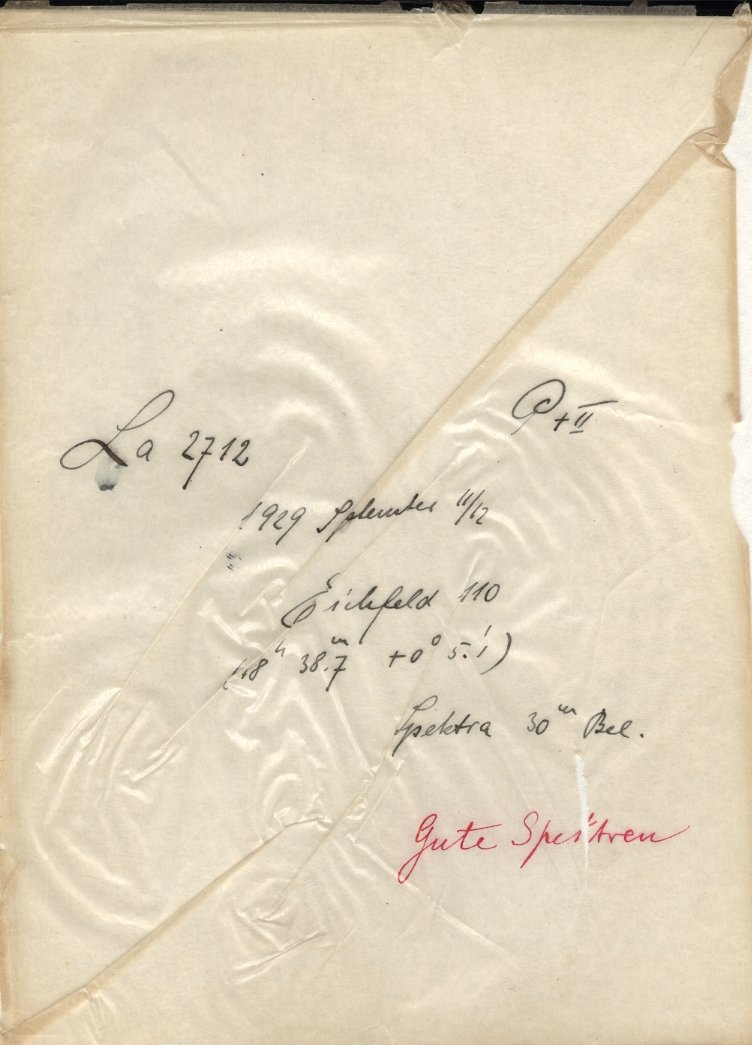 La 2712
P + II
1929 September 11/12
Eichfeld 110
(18ʰ 38ᵐ.7 +0° 5.'1)
Spektra 30ᵐ Bel.
Gute Spektren